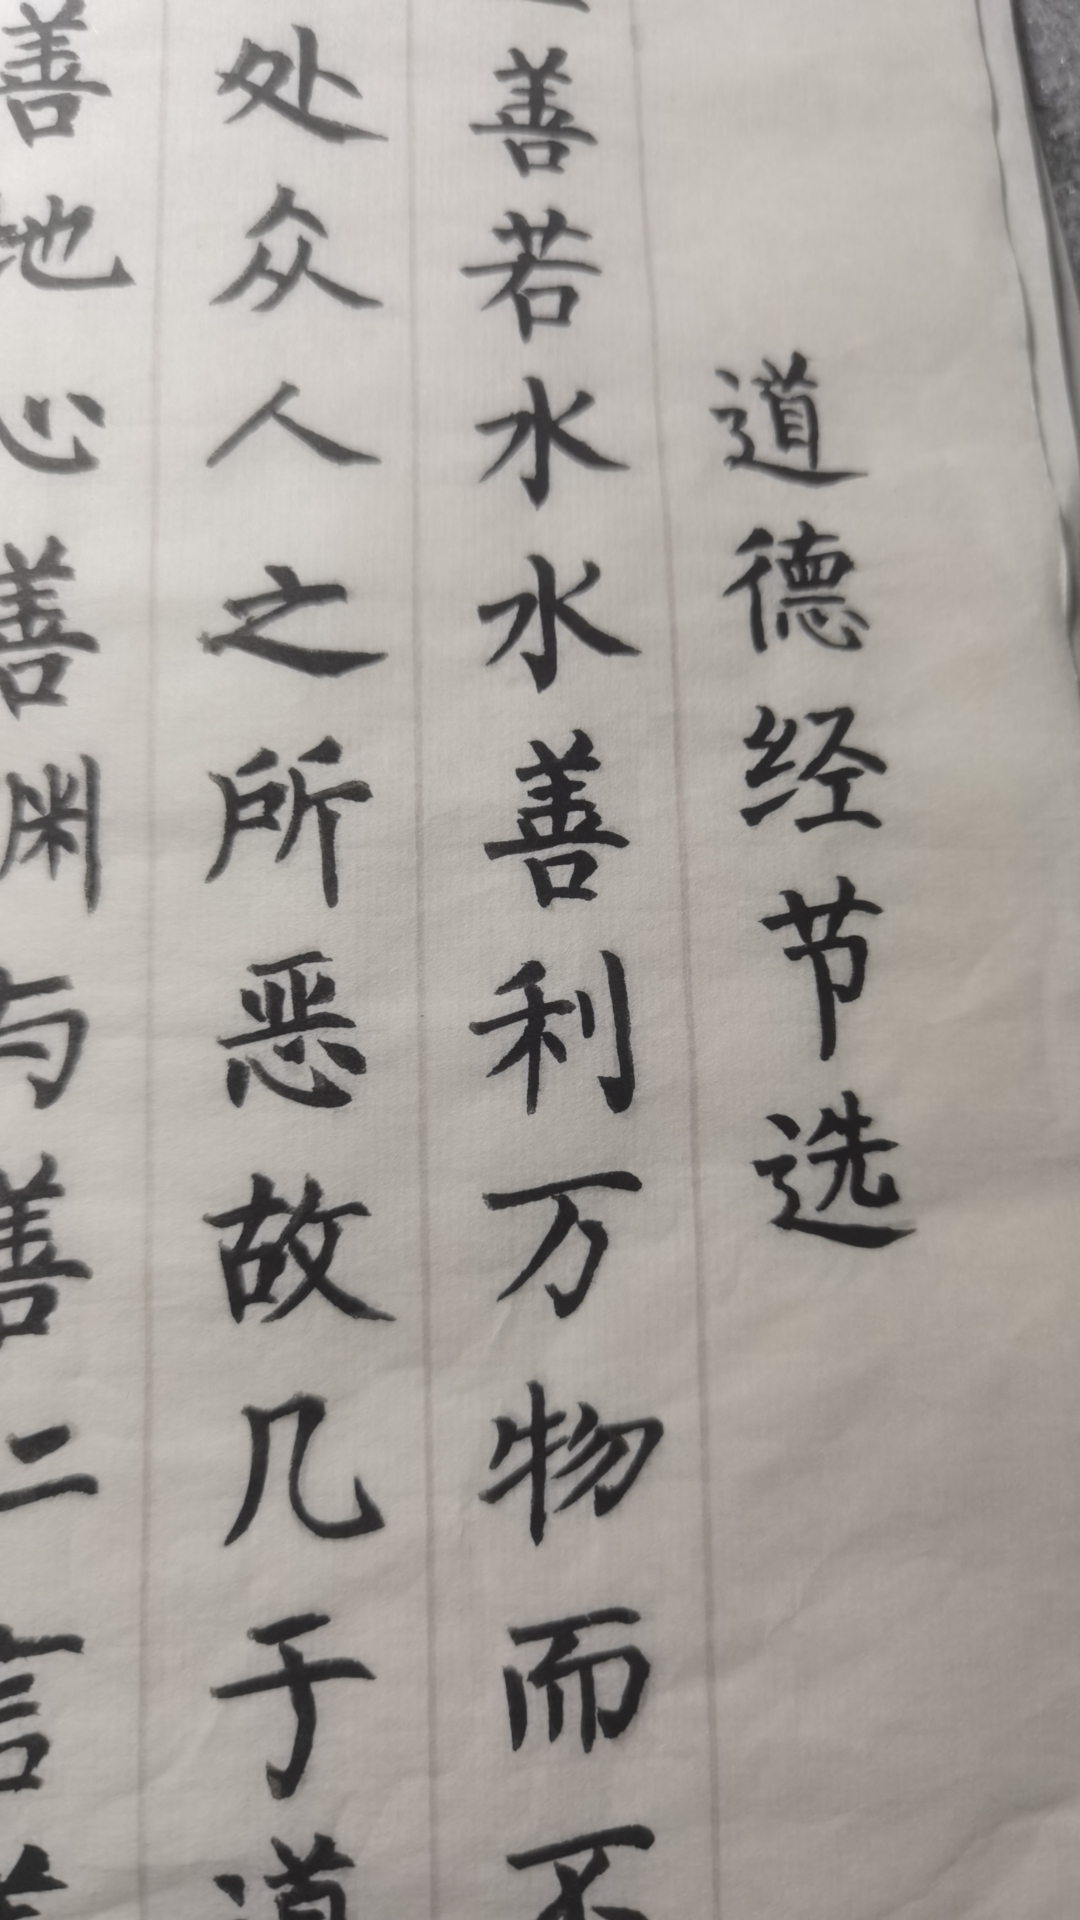 道德经节选
善若水水善利万物而不
处众人之所恶故几于道
善地心善渊与善二言善